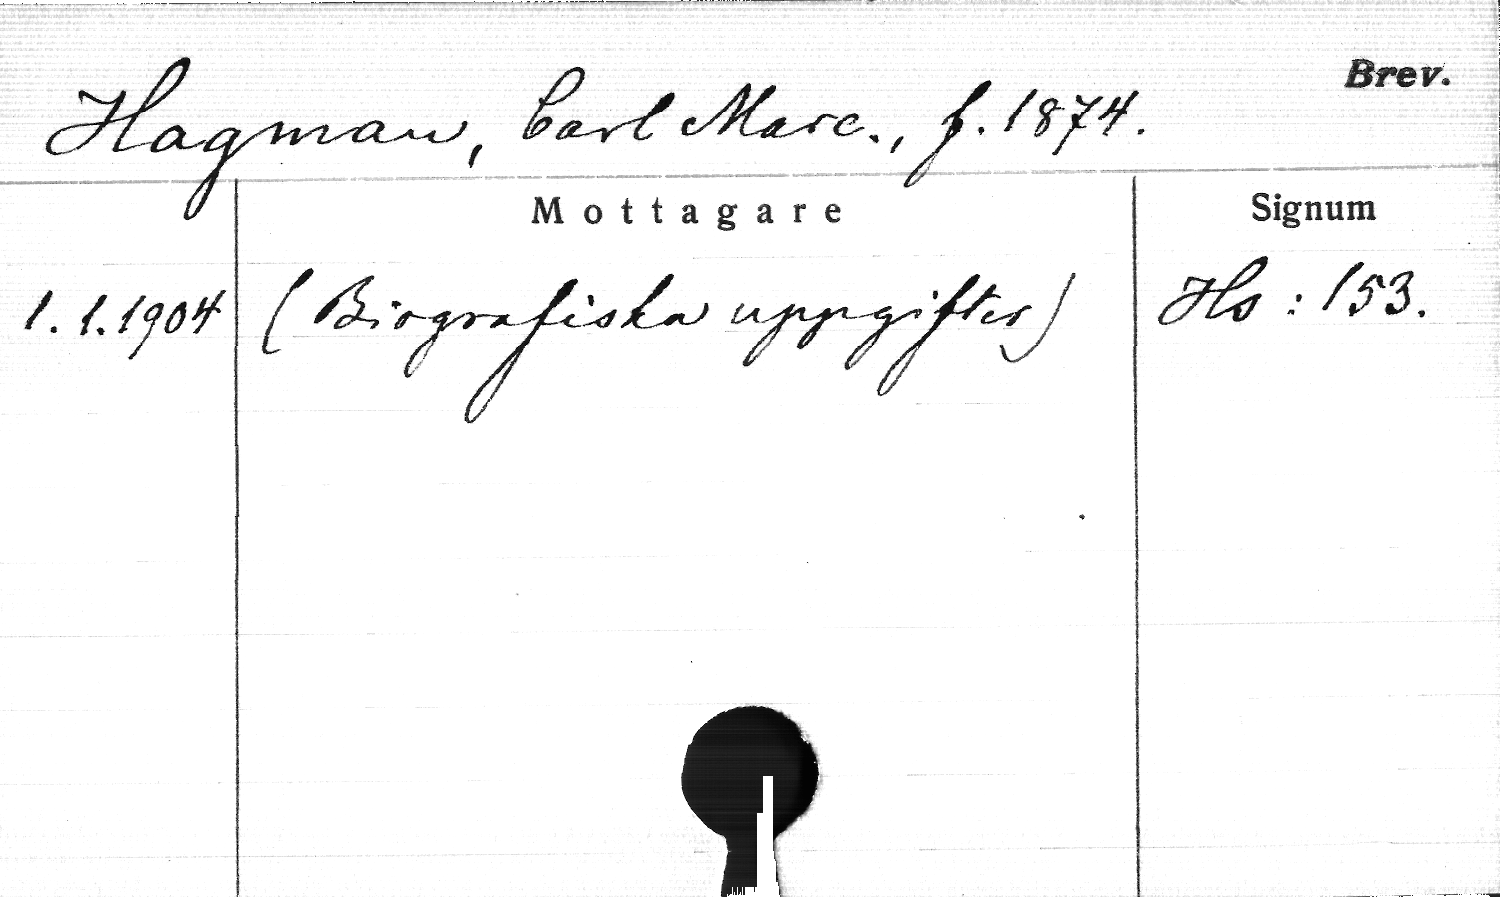 Brev.
Hagman, Carl Marc., f. 1874.
Mottagare Signum
1.1.1904 (Biografiska uppgifter) Hs : 153.